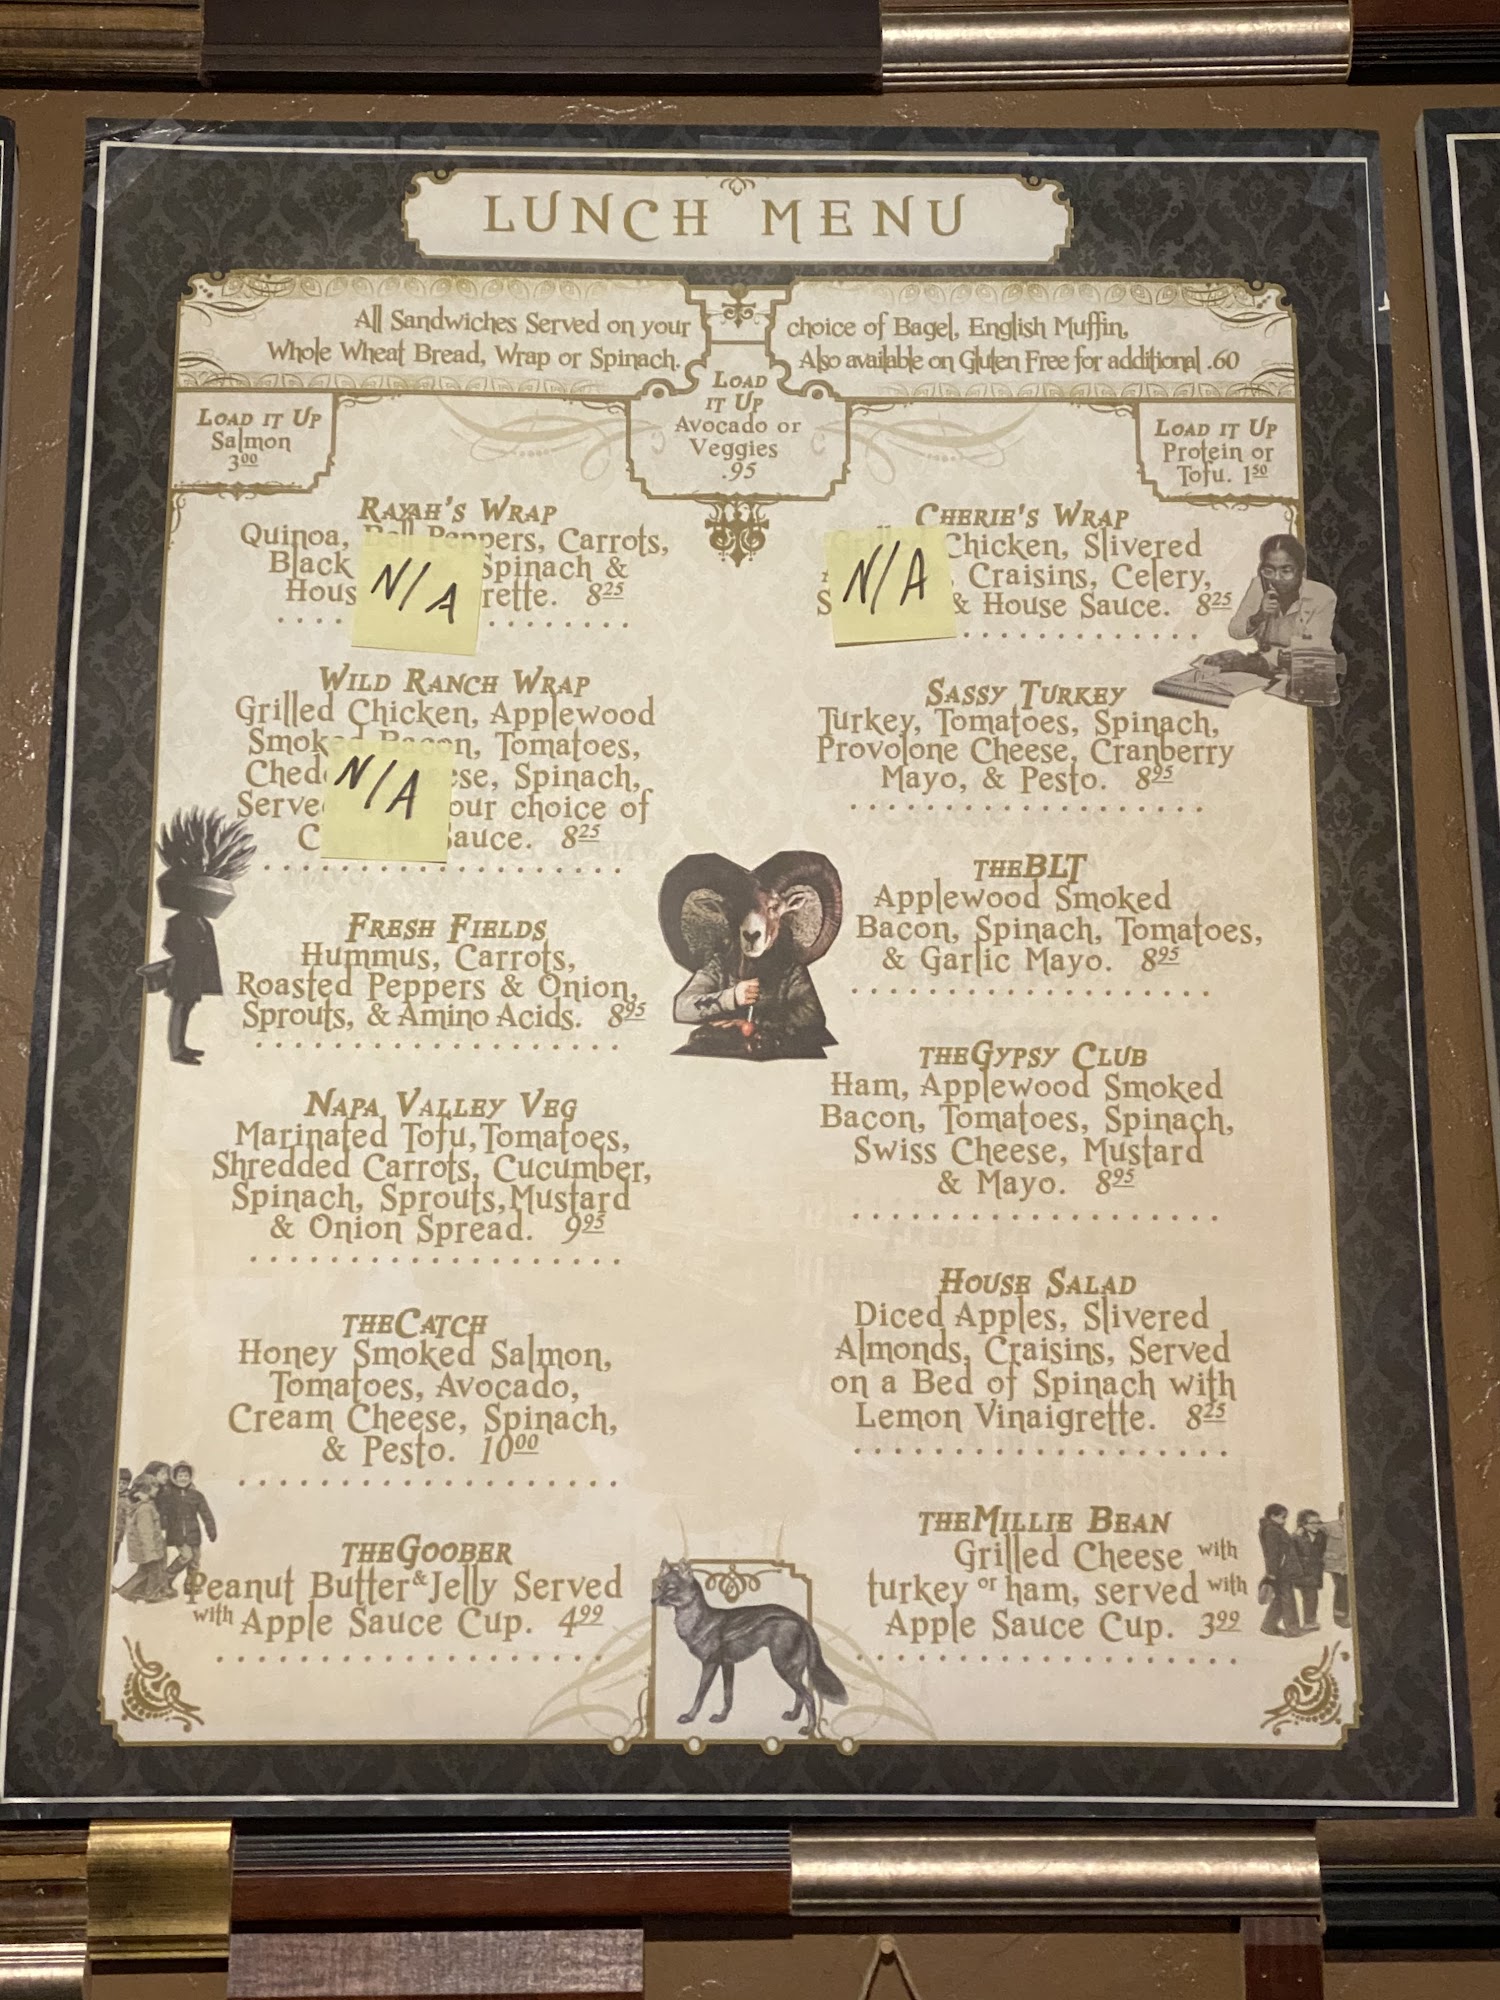 LUNCH MENU
All Sandwiches Served on your choice of Bagel, English Muffin,
Whole Wheat Bread, Wrap or Spinach. Also available on Gluten Free for additional .60
LOAD IT UP
Salmon
3.00
LOAD
IT UP
Avocado or
Veggies
.95
LOAD IT UP
Protein or
Tofu. 1.50
RAYAH'S WRAP
Quinoa, Bell Peppers, Carrots,
Black Spinach &
8.25
N/A
WILD RANCH WRAP
Grilled Chicken, Applewood
Smoked Bacon, Tomatoes,
Spinach,
our choice of
Sauce. 8.25
N/A
FRESH FIELDS
Hummus, Carrots,
Roasted Peppers & Onion,
Sprouts, & Amino Acids. 8.95
NAPA VALLEY VEG
Marinated Tofu, Tomatoes,
Shredded Carrots, Cucumber,
Spinach, Sprouts, Mustard
& Onion Spread. 9.95
THECATCH
Honey Smoked Salmon,
Tomatoes, Avocado,
Cream Cheese, Spinach,
& Pesto. 10.00
THEGOOBER
Peanut Butter & Jelly Served
with Apple Sauce Cup. 4.99
CHERIE'S WRAP
Grilled Chicken, Slivered
Craisins, Celery,
& House Sauce. 8.25
N/A
SASSY TURKEY
Turkey, Tomatoes, Spinach,
Provolone Cheese, Cranberry
Mayo, & Pesto. 8.95
THEBLT
Applewood Smoked
Bacon, Spinach, Tomatoes,
& Garlic Mayo. 8.95
THEGYPSY CLUB
Ham, Applewood Smoked
Bacon, Tomatoes, Spinach,
Swiss Cheese, Mustard
& Mayo. 8.95
HOUSE SALAD
Diced Apples, Slivered
Almonds, Craisins, Served
on a Bed of Spinach with
Lemon Vinaigrette. 8.25
THEMILLIE BEAN
Grilled Cheese with
turkey or ham, served with
Apple Sauce Cup. 3.99